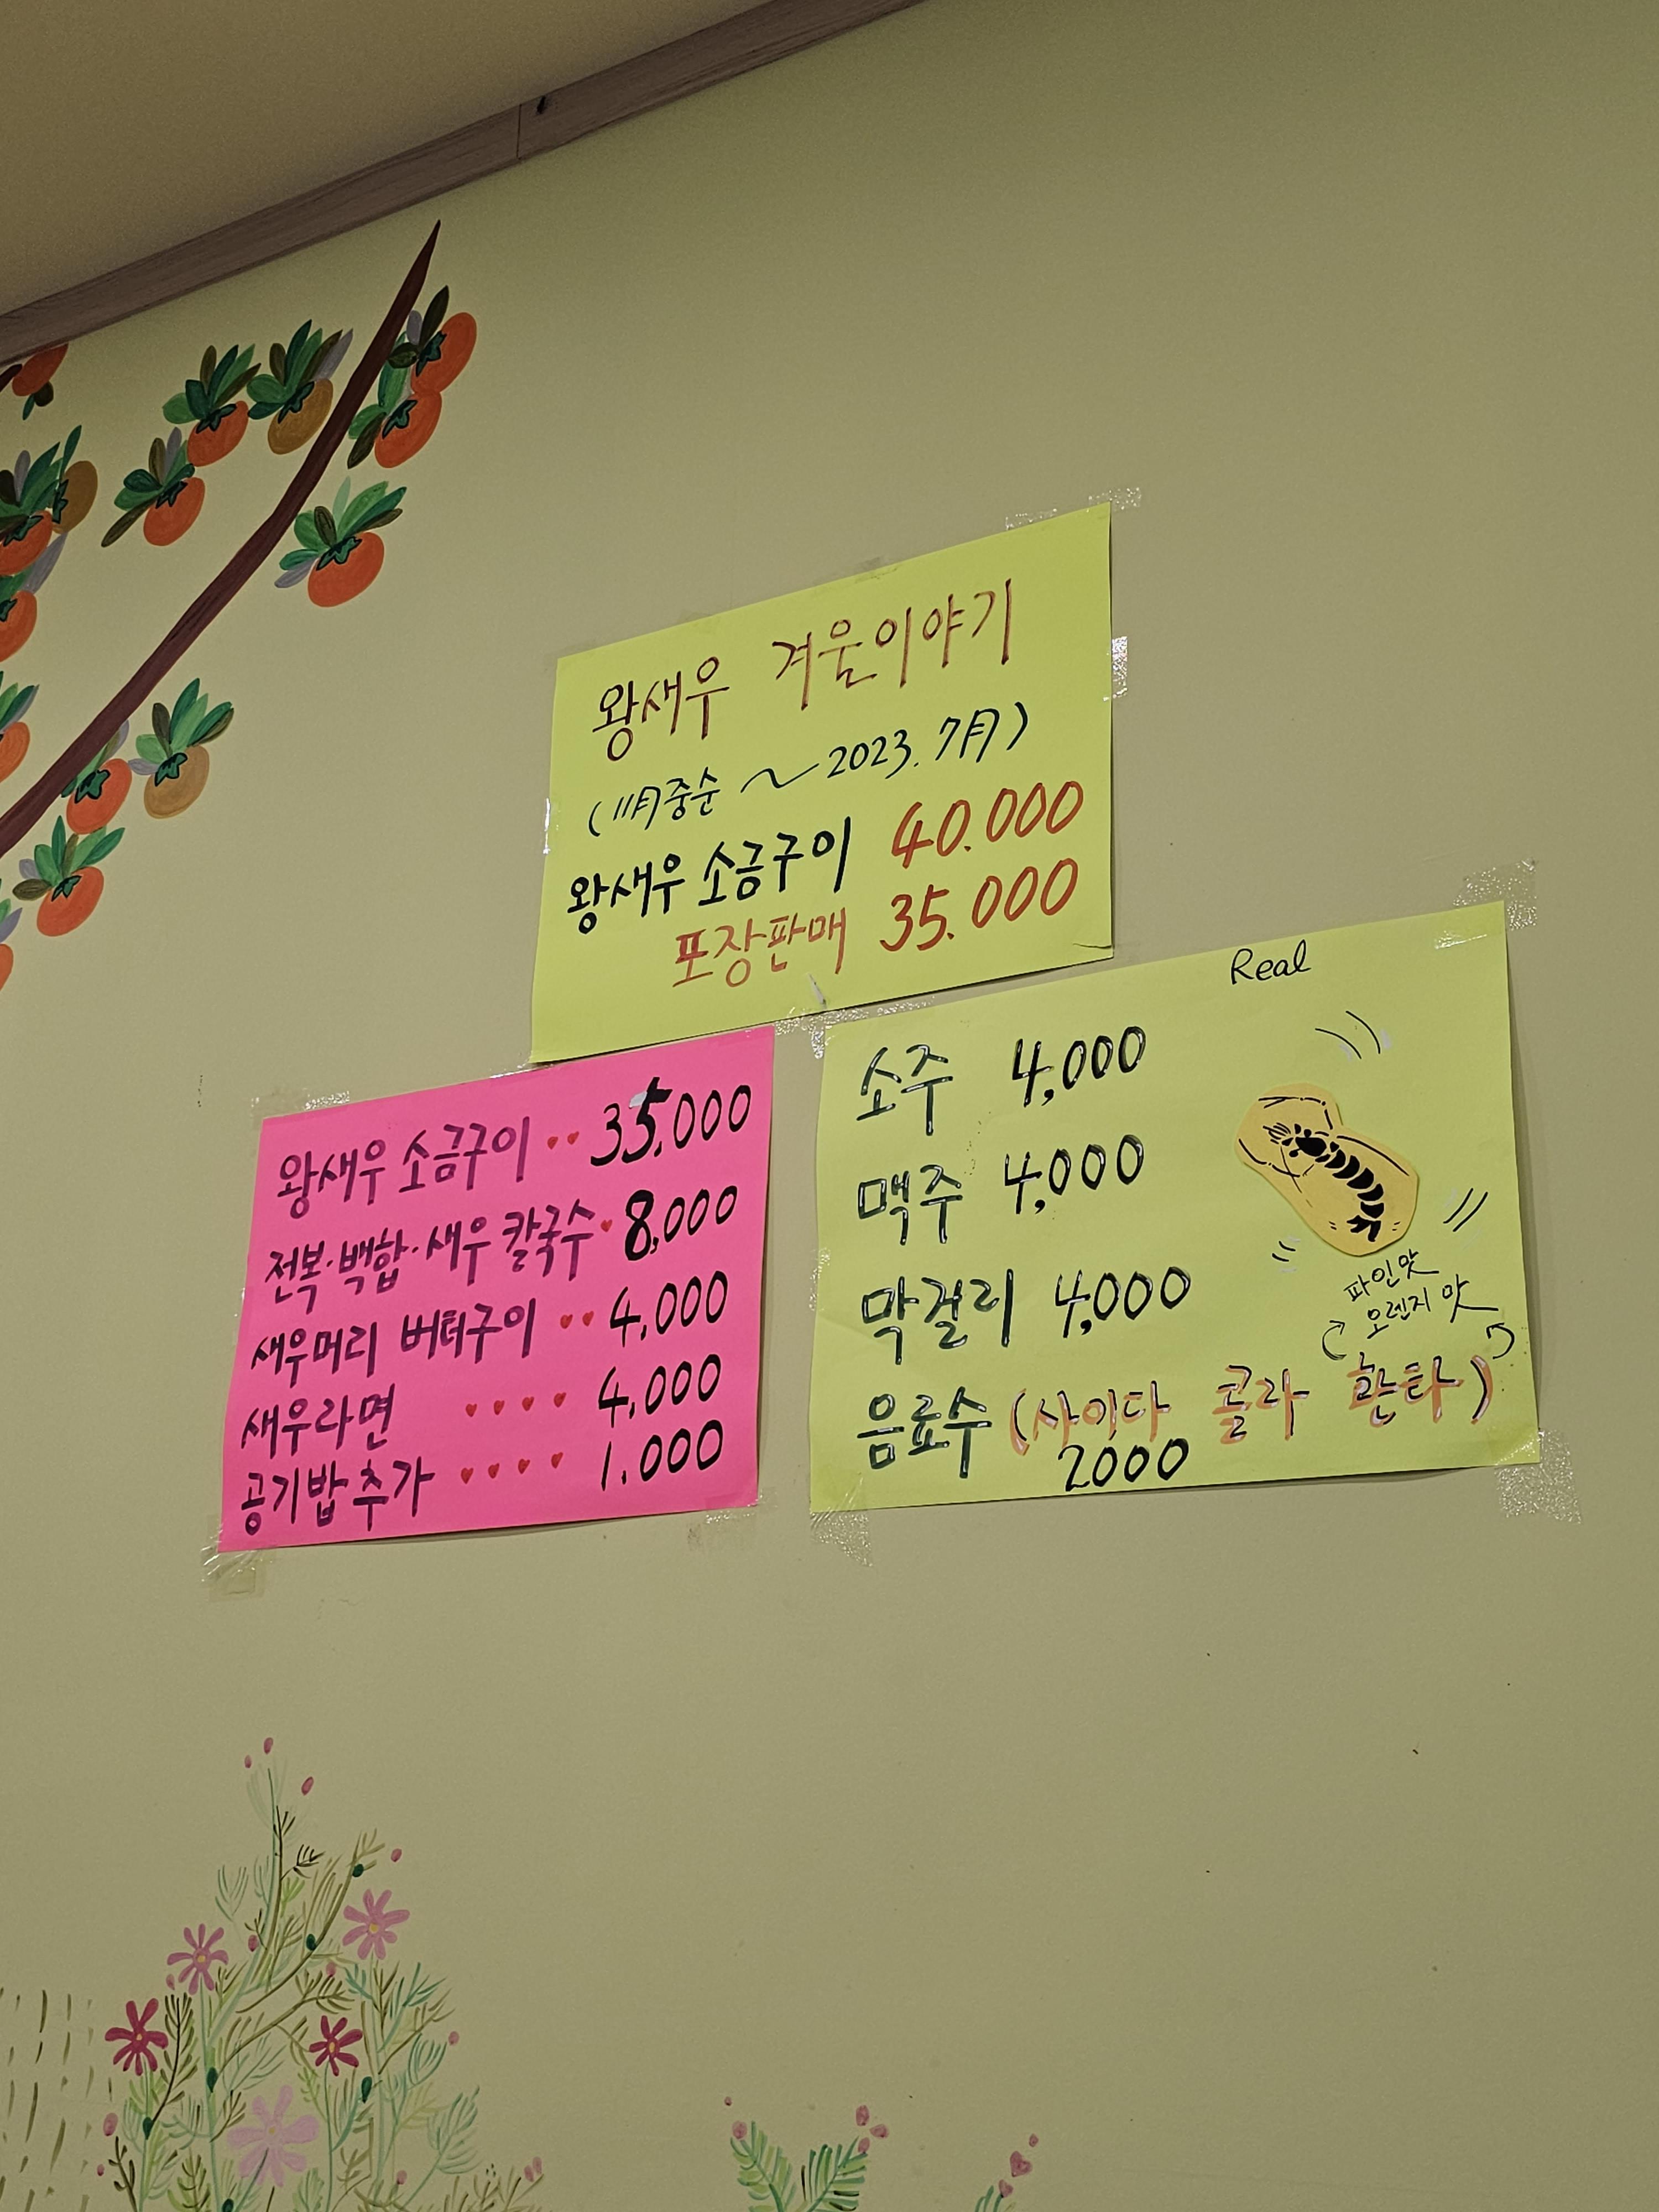 왕새우 겨울이야기
(11月중순 ~ 2023. 7月)
왕새우 소금구이 40.000
포장판매 35.000
왕새우 소금구이 ·· 35,000
전복·백합·새우 칼국수· 8,000
새우머리 버터구이 ·· 4,000
새우라면 ···· 4,000
공기밥 추가 ···· 1.000
Real
소주 4,000
맥주 4,000
막걸리 4,000
파인맛
오렌지 맛
음료수 (사이다 콜라 환타)
2000